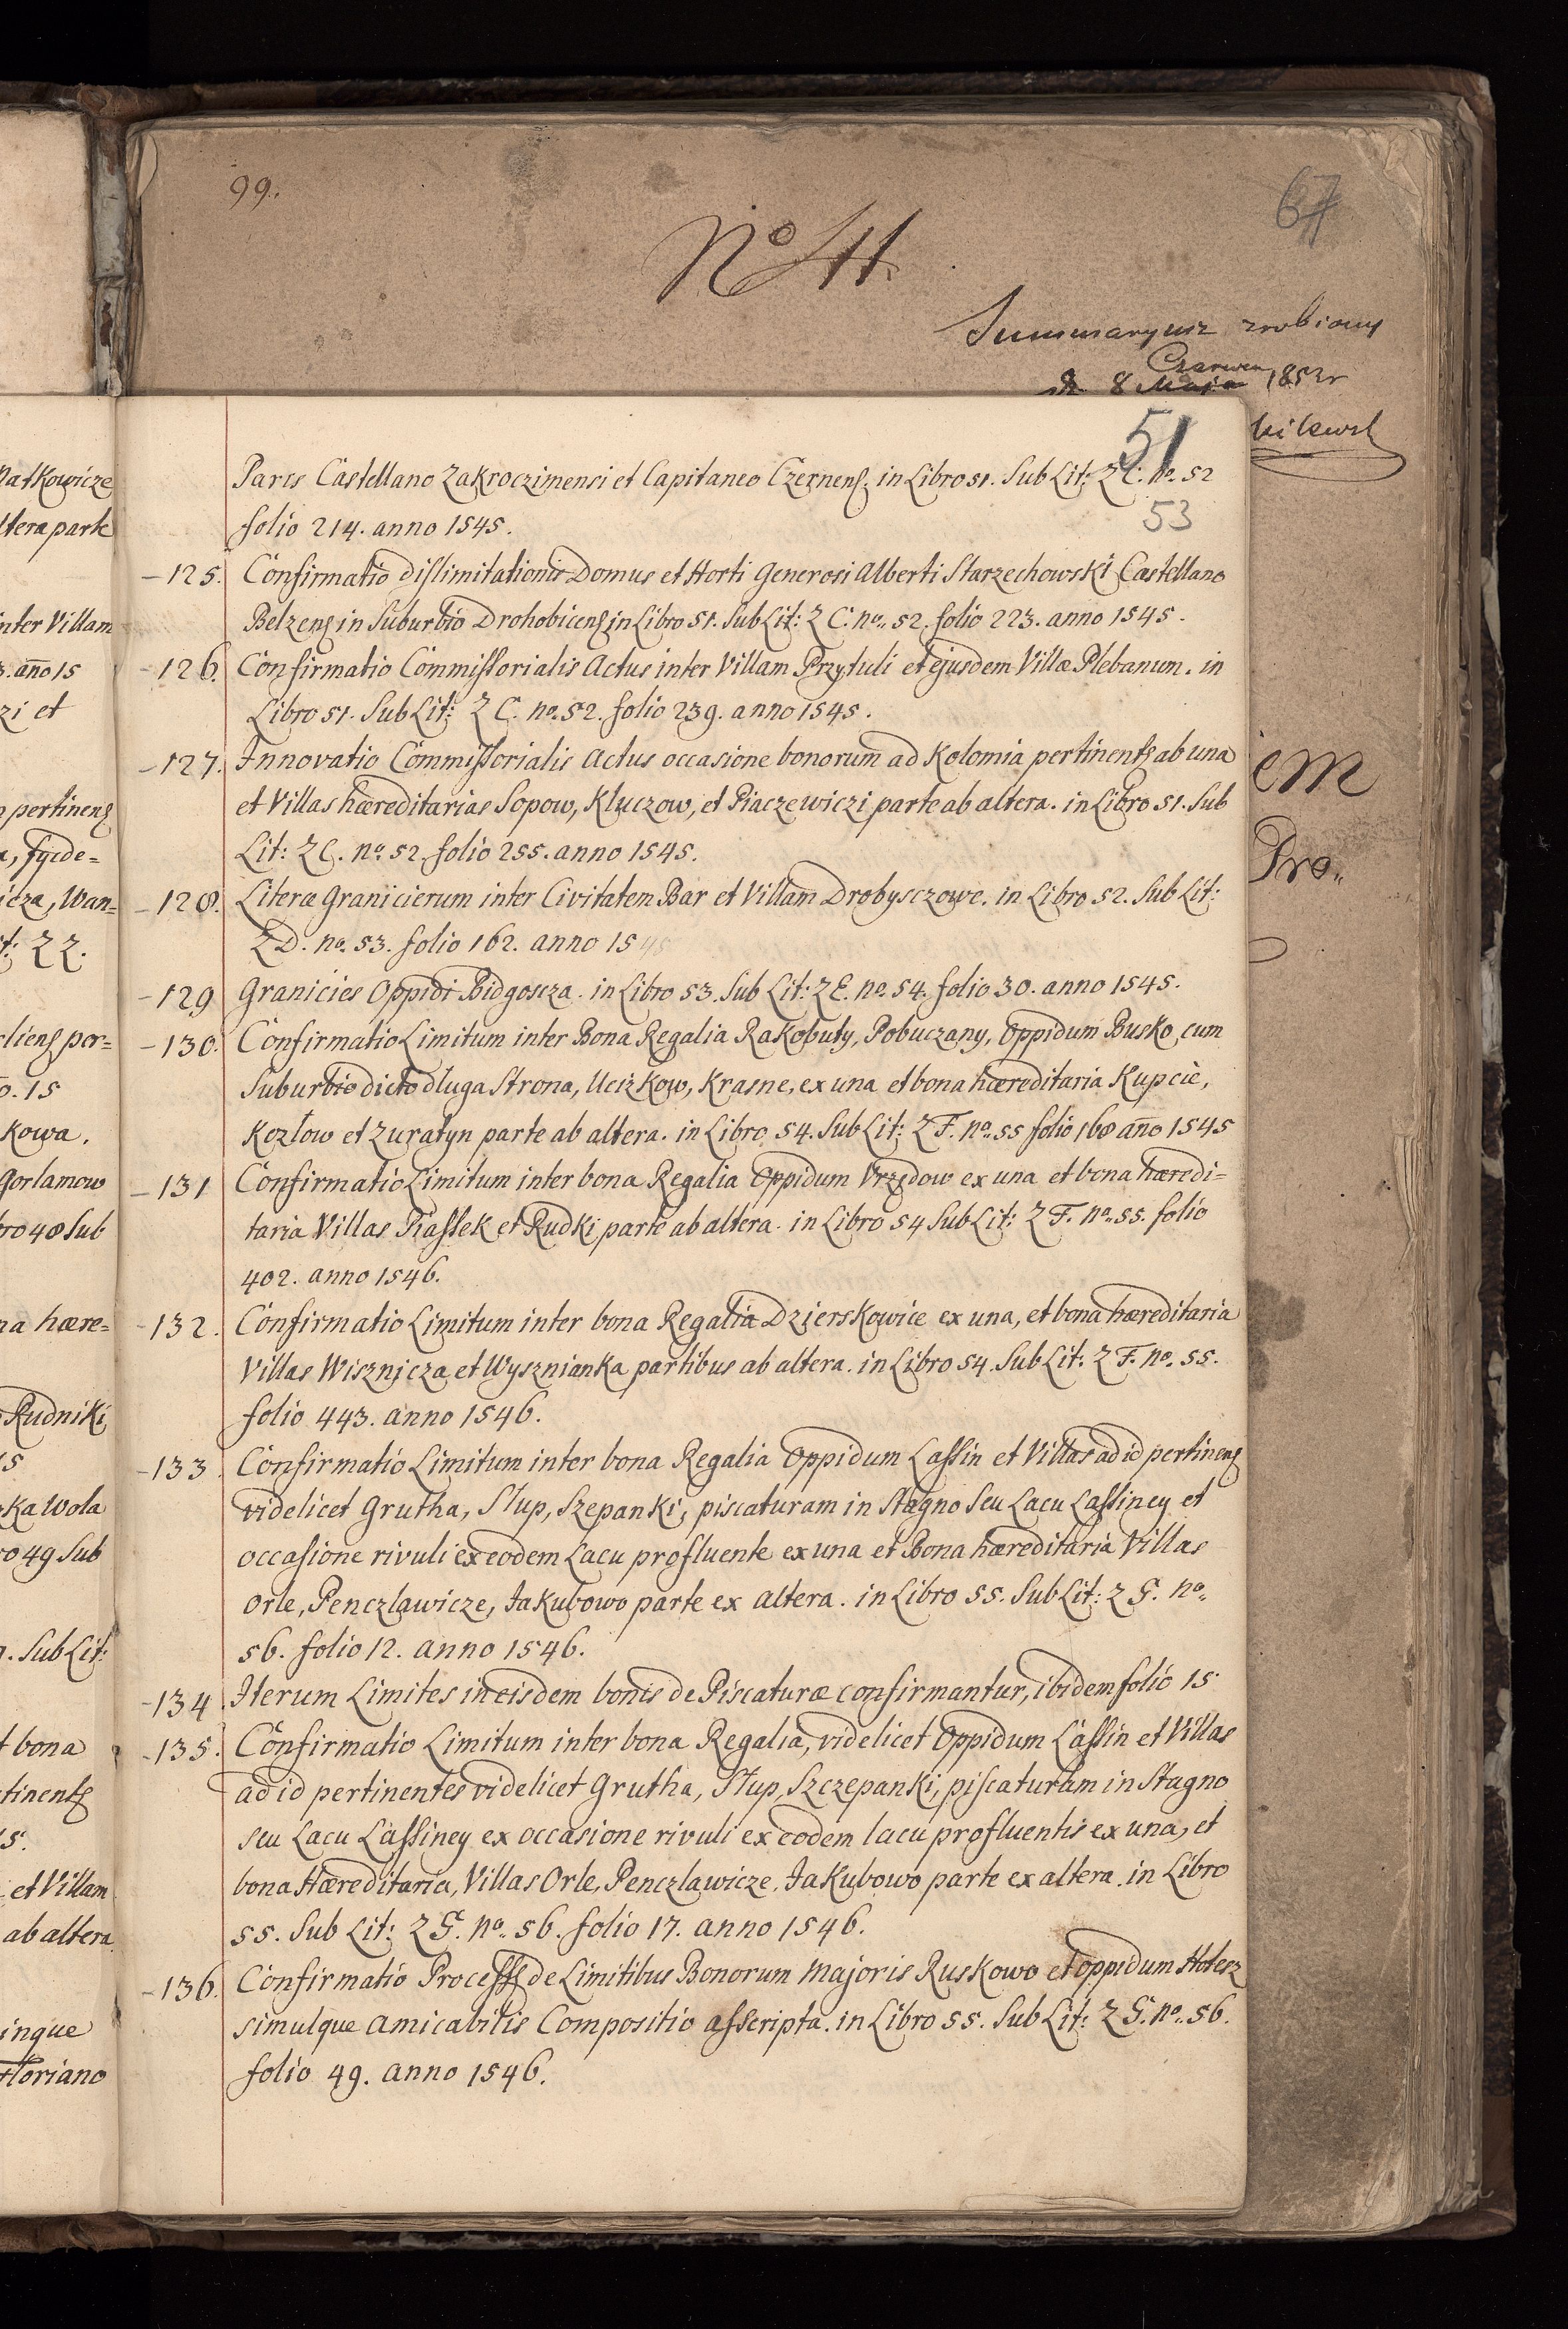 99.
67
No 41.
Summaryusz zrobiony
Czerwca
d. 8 Maja 1852r
51
Paris Castellano Zakroczimensi et Capitaneo Czernens. in Libro 51. Sub Lit: ZC. no. 52
53
folio 214. anno 1545.
125. Confirmatio dislimitationis Domus et Horti Generosi Alberti Starzechowski Castellano
Belzens in Suburbio Drohobicens in Libro 51. Sub Lit: ZC. no. 52. folio 223. anno 1545.
126. Confirmatio Commissorialis Actus inter Villam Przytuli et ejusdem Villæ Plebanum. in
Libro 51. Sub Lit: ZC. no. 52. folio 239. anno 1545.
127. Innovatio Commissorialis Actus occasione bonorum ad Kolomia pertinents ab una
et Villas hæreditarias Sopow, Kluczow, et Piaczewiczi parte ab altera. in Libro 51. Sub
Lit: ZC. no. 52. folio 255. anno 1545.
128. Literæ Granicierum inter Civitatem Bar et Villam Drobysczowe. in Libro 52. Sub Lit:
ZD. no. 53. folio 162. anno 1545
129 Granicies Oppidi Bidgoscza. in Libro 53. Sub Lit: ZE. no. 54. folio 30. anno 1545.
130. Confirmatio Limitum inter Bona Regalia Rakobuty, Pobuczany, Oppidum Busko, cum
Suburbio dicto dluga Strona, Uciszkow, Krasne, ex una et bona hæreditaria Kupcie,
Kozlow et Zuratyn parte ab altera. in Libro 54. Sub Lit: ZF. no. 55 folio 168 año 1545
131 Confirmatio Limitum inter bona Regalia Oppidum Vrzędow ex una et bona hæredi=
taria Villas Piassek et Rudki parte ab altera. in Libro 54 Sub Lit: ZF. no. 55. folio
402. anno 1546.
132. Confirmatio Limitum inter bona Regalia Dzierskowice ex una, et bona hæreditaria
Villas Wisznicza et Wysznianka partibus ab altera. in Libro 54. Sub Lit: ZF. no. 55.
folio 443. anno 1546.
133. Confirmatio Limitum inter bona Regalia Oppidum Lassin et Villas ad id pertinens
videlicet Grutha, Słup, Szepanki, piscaturam in Stagno Seu Lacu Lassiney et
occasione rivuli ex eodem Lacu profluente ex una et Bona hæreditaria Villas
Orle, Penczlawicze, Jakubowo parte ex altera. in Libro 55. Sub Lit: ZG. no.
56. folio 12. anno 1546.
134. Iterum Limites in eisdem bonis de Piscaturæ confirmantur, ibidem folio 15
135. Confirmatio Limitum inter bona Regalia, videlicet Oppidum Lassin et Villas
ad id pertinentes videlicet Grutha, Słup, Szczepanki, piscaturam in Stagno
seu Lacu Lassiney ex occasione rivuli ex eodem lacu profluentis ex una, et
bona Hæreditaria, Villas Orle, Penczlawicze, Jakubowo parte ex altera. in Libro
55. Sub Lit: ZG. no. 56. folio 17. anno 1546.
136. Confirmatio Process de Limitibus Bonorum Majoris Ruskowo et oppidum Hotesz
simulque Amicabilis Compositio asscripta. in Libro 55. Sub Lit: ZG. no. 56.
folio 49. anno 1546.